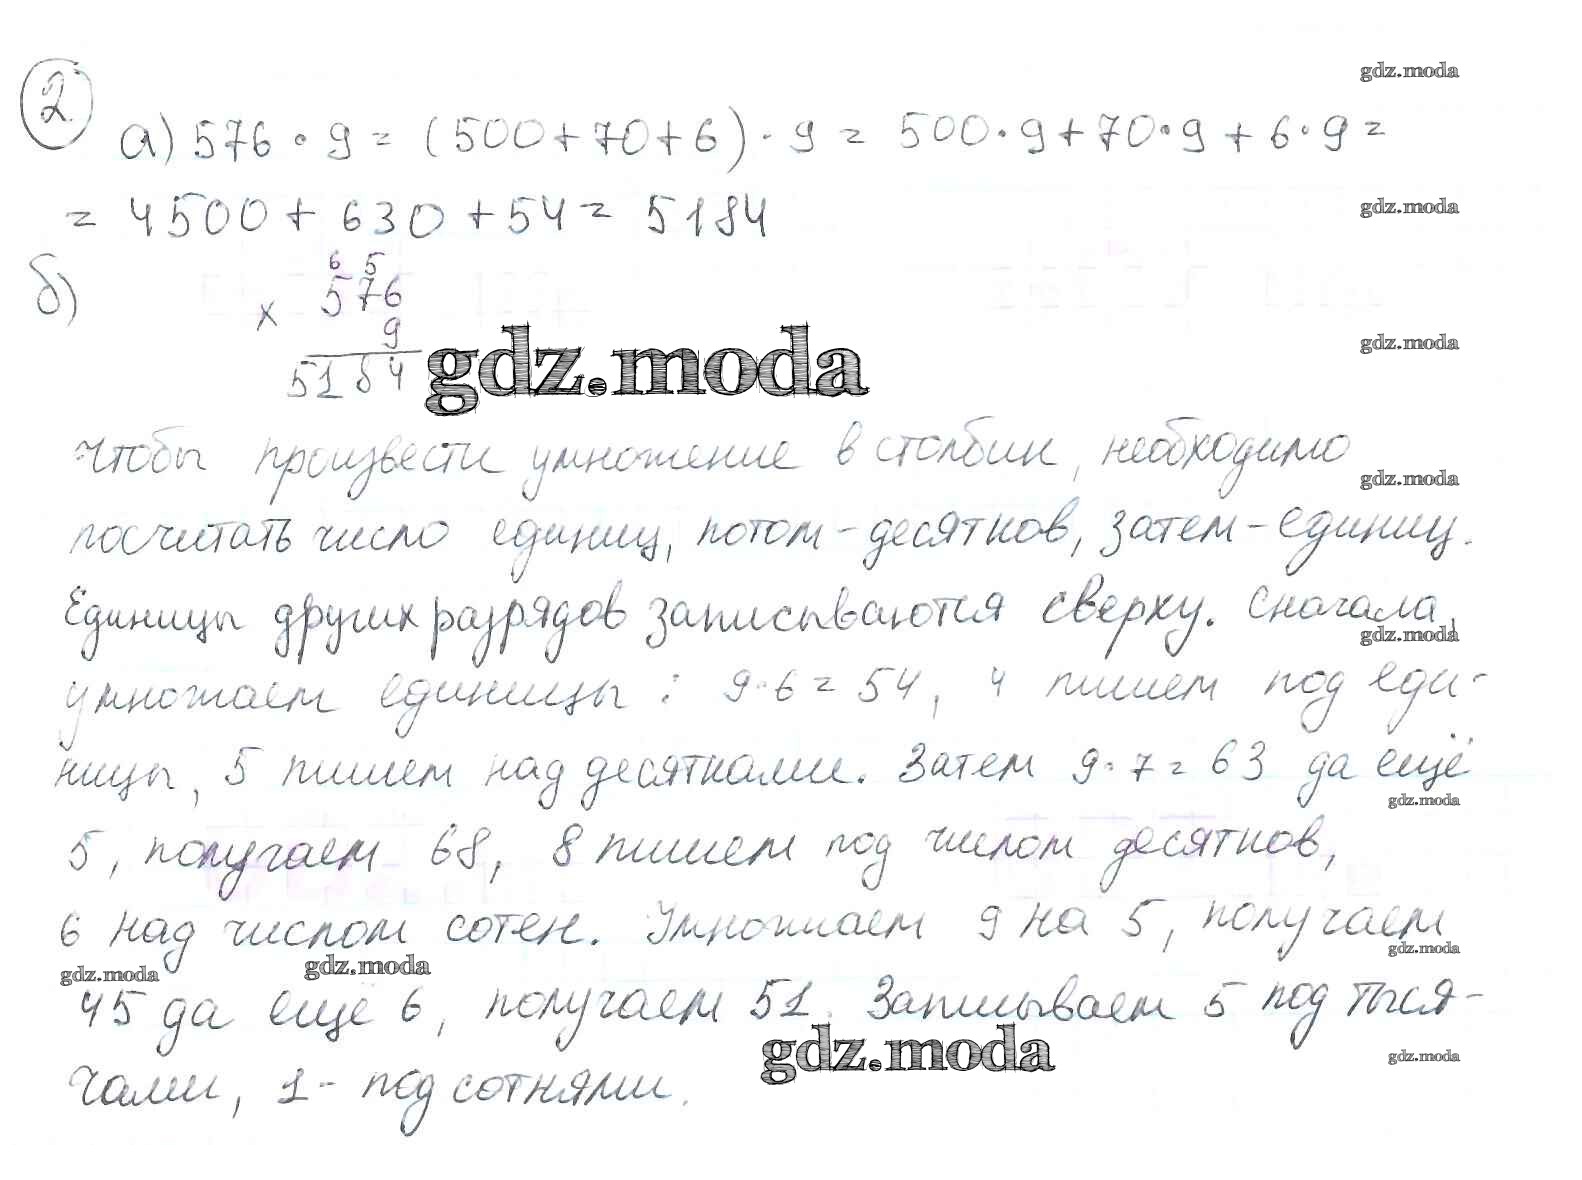 2.
gdz.moda
а) 576 · 9 = (500+70+6) · 9 = 500·9+70·9+6·9=
= 4500 + 630 + 54 = 5184
gdz.moda
б)
6 5
576
×
9
5184
gdz.moda
gdz.moda
Чтобы произвести умножение в столбик, необходимо
gdz.moda
посчитать число единиц, потом - десятков, затем - единиц.
Единицы других разрядов записываются сверху. Сначала
gdz.moda
умножаем единицы: 9·6 = 54, 4 пишем под еди-
ницы, 5 пишем над десятками. Затем 9·7=63 да ещё
gdz.moda
5, получаем 68, 8 пишем под числом десятков,
6 над числом сотен. Умножаем 9 на 5, получаем
gdz.moda
gdz.moda gdz.moda
45 да ещё 6, получаем 51. Записываем 5 под тыся-
gdz.moda
gdz.moda
чами, 1 - под сотнями.